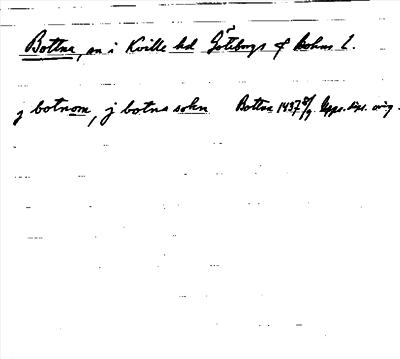 Bottna, sn i Kville hd Göteborgs o Bohus l.
j botnom, j botna sokn Bottna 1437 8/9. Upps. dipl. orig.